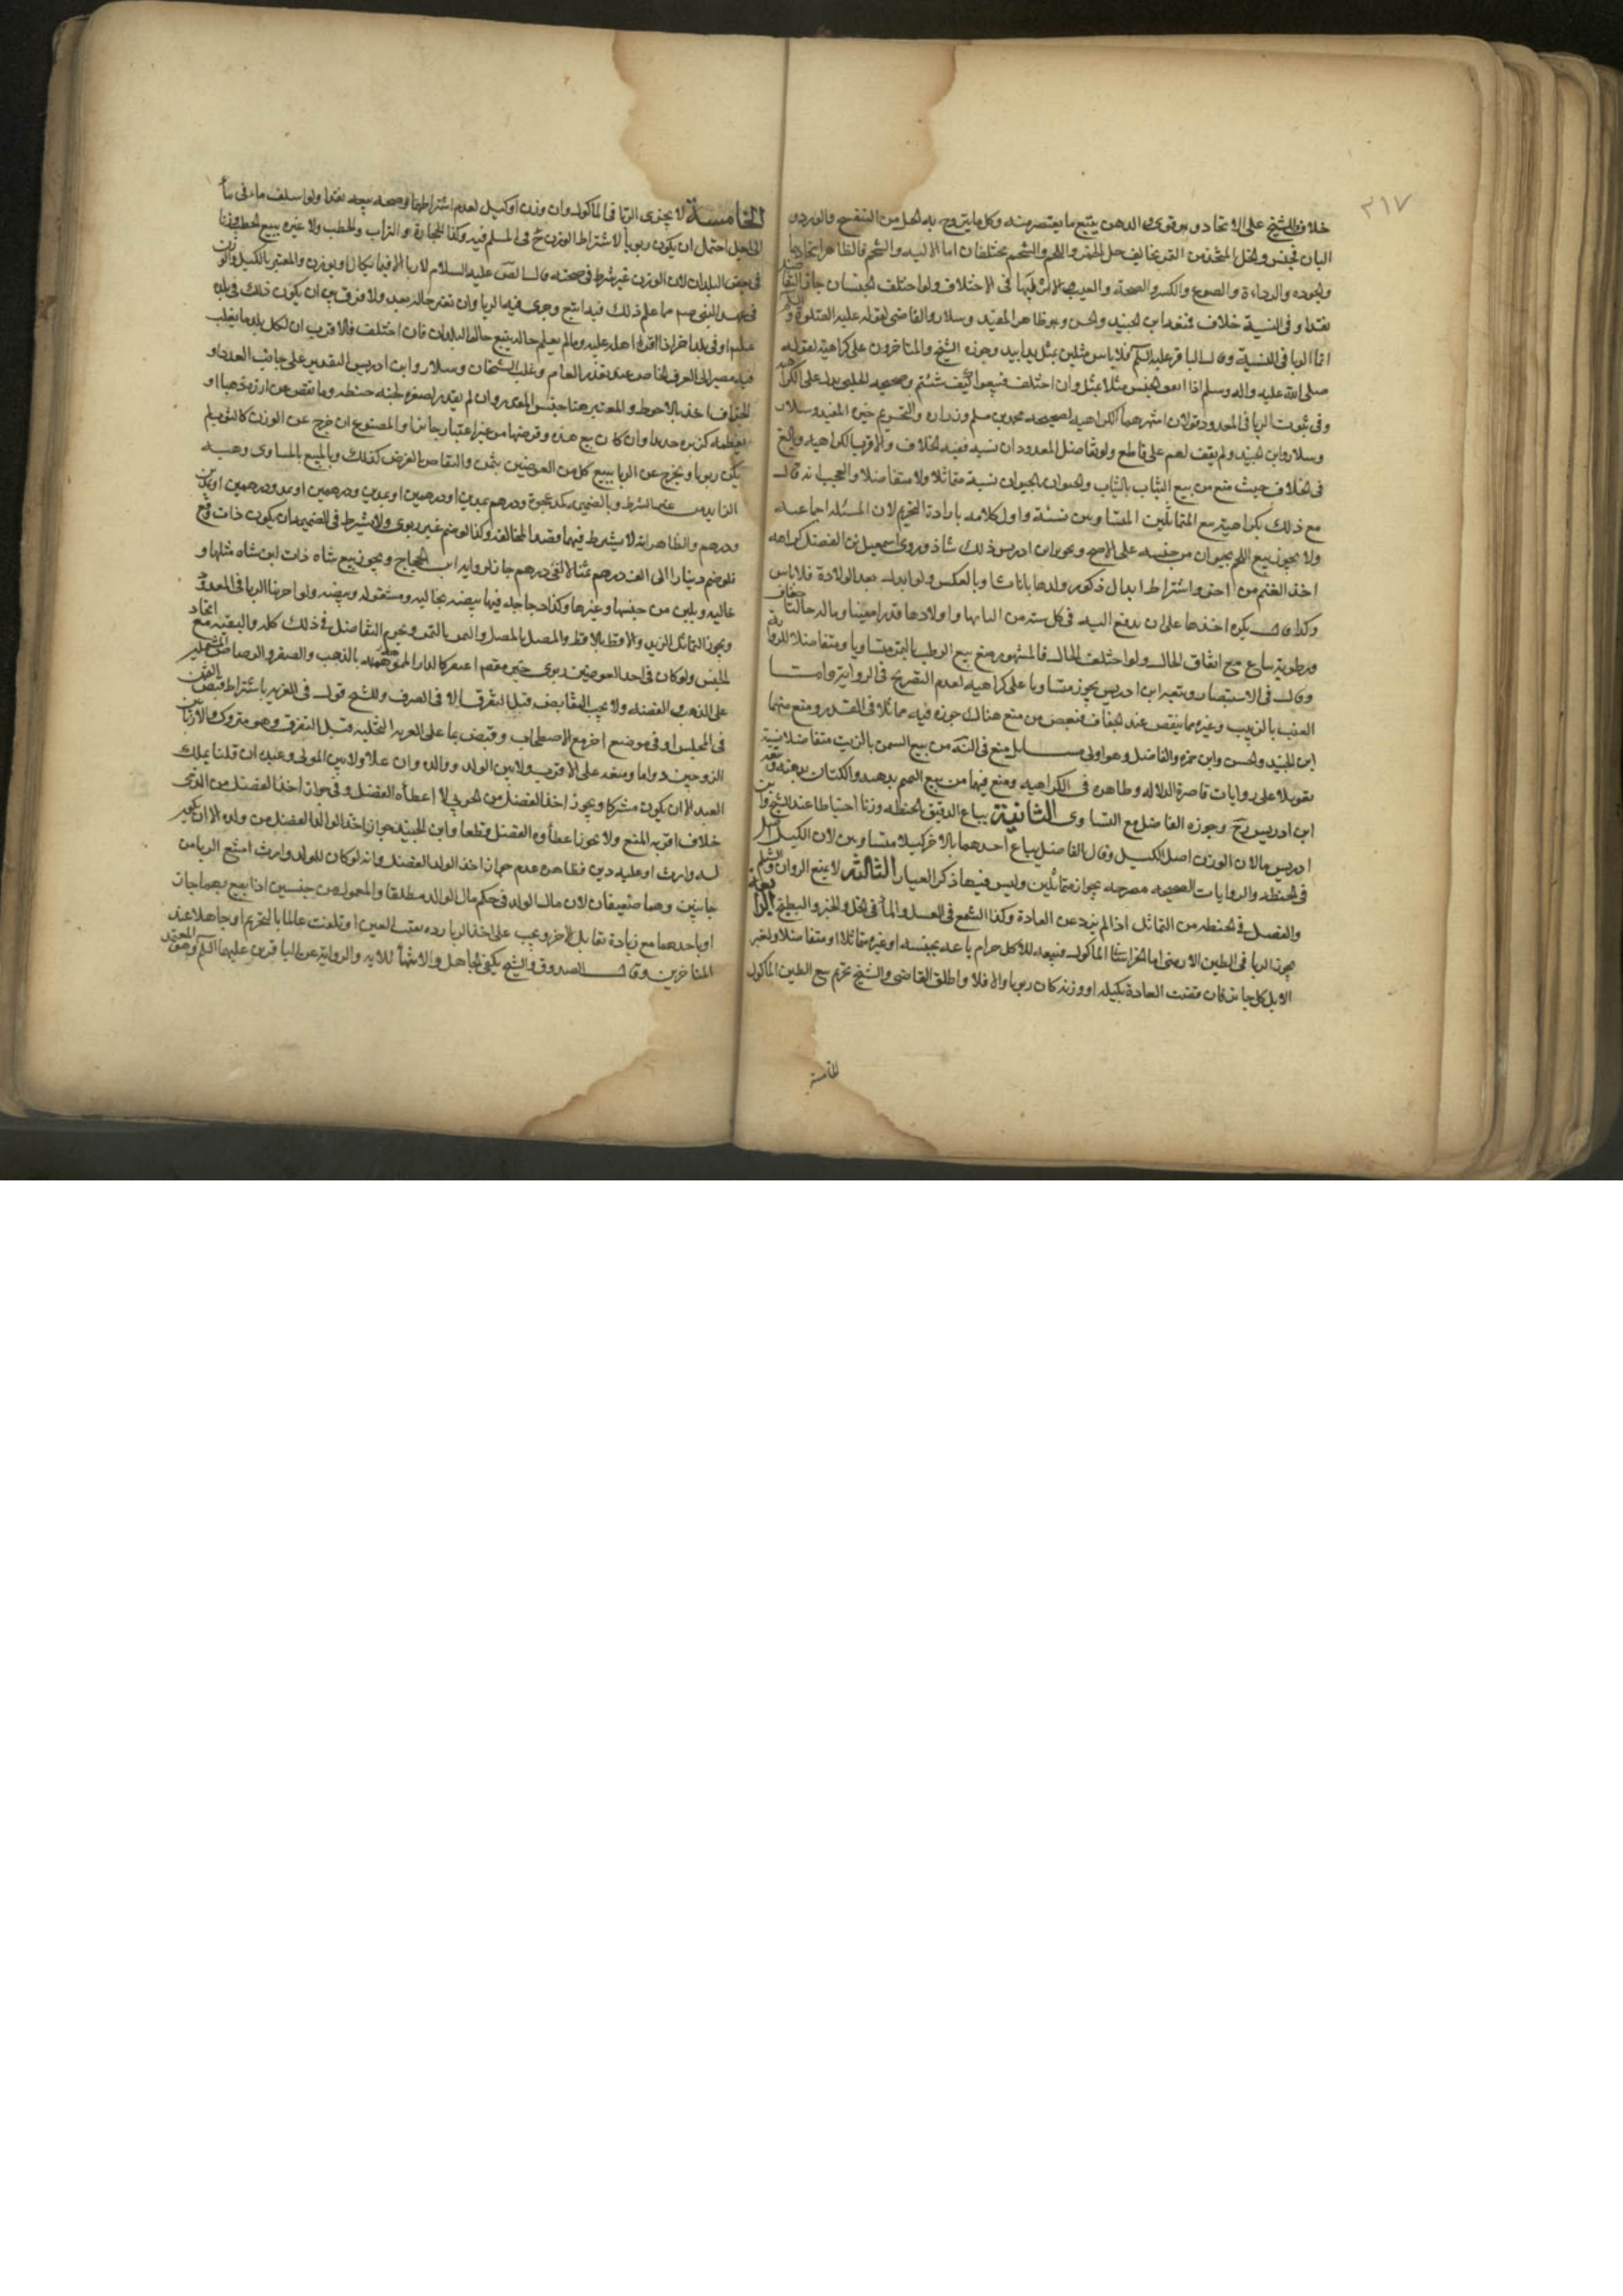 ٣١٧
خلافا للشيخ على الاتحاد وهو قوى والدهن يتبع ما يعتصر منه وكل ما يتروح به كدهن البنفسج والورد و
البان فجنس والخل المتخذ من التمر يخالف خل الخمر واللحم والشحم مختلفان اما الالية والشحم فالظاهر اتحادها
والجوده والرداءة والصوغ والكسر والصحة والعيب لا اختلاف ولو اختلف الجنسان جاز التفاضل
نقدا و فى النسية خلاف فمنعه ابن الجنيد والحسن وهو ظاهر المفيد وسلار والقاضى لقوله عليه الصلوة و السلم
انما الربا فى النسية وقال الباقر عليه السلم فلا باس مثلين بمثل يدا بيد وجوزه الشيخ والمتاخرون على كراهية لقوله
صلى الله عليه واله وسلم اذا اختلف الجنس فبيعوا كيف شئتم وصحيحه الحلبى يدل على الكراهية
وفى ثبوت الربا فى المعدود قولان اشهرهما الكراهيه لصحيحه محمد بن مسلم وزراره والتحريم خيره المفيد وسلار
وسلار وابن الجنيد ولم يقف لهم على قاطع ولو تفاضل المعدودان نسية ففيه الخلاف والاقرب الكراهيه وبالغ
فى الخلاف حيث منع من بيع الثياب بالثياب والحيوان بالحيوان نسية متماثلا ولا متفاضلا والعجب انه قال
مع ذلك بكراهية بيع المتماثلين المتساويين نسئة واول كلامه بارادة التحريم لان المسئلة اجماعيه
ولا يجوز بيع اللحم بحيوان من جنسه على الاصح وتجويز ابن ادريس ذلك شاذ وروى اسمعيل بن الفضل كراهه
اخذ الغنم من احق واشتراط ابدال ذكور ولدها باناث او بالعكس ولو ابدله بعد الولادة فلا باس
وكذا قال يكره اخذها على ان يدفع اليه فى كل سنة من البانها واولادها قدرا معينا وماله حالتا جفاف
ورطوبة يباع مع اتفاق الحال ولو اختلف الحال فالمشهور منع بيع الرطب بالتمر متساويا ومتفاضلا للرواية
وقال فى الاستبصار وتبعه ابن ادريس يجوز متساويا على كراهيه لعدم التصريح فى الرواية واما
العنب بالزبيب وغيره مما ينقص عند الجفاف فبعض من منع هناك جوزه فيه مماثلا فى القدر ومنع منهما
ابن الجنيد والحسن وابن حمزه والفاضل وهو اولى مسائل منع فى النهاية من بيع السمن بالزيت متفاضلا نسية
تعويلا على روايات قاصرة الدلالة وظاهره فى الكراهيه ومنع فيها من بيع السمسم بدهنه والكتان بدهنه وتبعه
ابن ادريس رح وجوزه الفاضل مع التساوى الثانية يباع الدقيق بالحنطه وزنا احتياطا عند الشيخ وابن
ادريس مالا ن الوزن اصل الكيل وقال الفاضل يباع احدهما بالاخر كيلا متساويين لان الكيل اصل
فى الحنطه والروايات الصحيحه مصرحه بجوازه متماثلين وليس فيها ذكر العيار الثالثة لا يمنع الزوان والشلم
والفصل فى الحنطه من التماثل اذا لم يزد عن العادة وكذا الشمع فى العسل والماء فى الخل والخبز والبطيخ الرابعة
يجوز الربا فى الطين الارمنى اما الخراسانى الماكول فبيعه للاكل حرام باعه بجنسه او غيره متماثلا او متفاضلا ولغير
الاكل جايز فان قضت العادة بكيله او وزنه كان ربويا والا فلا واطلق القاضى والشيخ تحريم بيع الطين الماكول
الخامسة
الخامسة لا يجرى الربا فى الماكول وان وزن او كيل لعدم اشتراطهما فى صحه بيعه نقدا ولو اسلف ماء فى ماء
الى اجل احتمل ان يكون ربويا لاشتراط الوزن ح فى المسلم فيه وكذا الحجارة والتراب والحطب ولا عبره ببيع الحطب وزنا
فى بعض البلدان لان الوزن غير شرط فى صحته قال الصادق عليه السلام لا ربا الا فيما يكال او يوزن والمعتبر بالكيل والوزن
فى عهد النبى صم مما علم ذلك فيه اتبع وجرى فيه الربا وان تغير حاله بعد ولا فرق بين ان يكون ذلك فى بلده
عليم او فى بلد اخر اذا اقر اهله عليه وما لم يعلم حاله يتبع حاله البلدان فان اختلف فالاقرب ان لكل بلد ما يغلب
فيه مصير الى العرف الخاص عند تعذر العام وغلب الشيخان وسلار وابن ادريس التقدير على جانب العدد او
الجزاف اخذ بالاحوط والمعتبر هنا جنس المقدر وان لم يقدر لصغره كحبه حنطه وما نقص عن ارزه ذهبا او
لعظمه كزبره حديد وان كان بيع هذه وقرضها من غير اعتبار جايزا والمصنوع ان خرج عن الوزن كالثوب لم
يكن ربويا ويخرج عن الربا ببيع كل من العوضين بثمن والتقاص بالقرض كذلك وبالبيع بالمساوى وهبه
الزايد من غير شرط وبالضميمه كمد عجوة ودرهم بمدين او درهمين او بمدين ودرهمين او بمد ودرهمين او بمدين
ودرهم والظاهر انه لا يشترط فيهما قصد المخالفه وكذا لو ضم غير ربوى ولا يشترط فى الضميمه ان يكون ذات وقع
فلو ضم دينارا الى الف درهم ثمنا لالفى درهم جاز لرواية ابن الحجاج ويجوز بيع شاه ذات لبن بشاه مثلها و
خاليه وبلبن من جنسها وغيرها وكذا دجاجه فيها بيضه بخاليه ومشغوله وببيضه ولو اجرينا الربا فى المعدود
ويجوز التماثل الزبد والاقط بالاقط والمصل بالمصل والتمر بالتمر ويحرم التفاضل فى ذلك كله والبقيه مع اتحاد
الجنس ولو كان فى احد العوضين ربوى خيره مضم اعتبر كالدار المموهه بالذهب والصفر والرصاص المشتمل
على الذهب والفضه ولا يجب التقابض قبل التفرق الا فى الصرف وللشيخ قول فى العريه باشتراط قبض الثمن
فى المجلس او فى موضع اخر مع الاصطحاب وقبض ما على العريه التخليه قبل التفرق وهو متروك ولا ربا بين
الزوجين دواما ومتعه على الاقرب ولا بين الولد ووالده وان علا ولا بين المولى وعبده ان قلنا يملك
العبد الا ان يكون مشتركا ويجوز اخذ الفضل من الحربى لا اعطاه الفضل وفى جواز اخذ الفضل من الذمى
خلاف اقربه المنع ولا يجوز اعطاؤه الفضل قطعا وابن الجنيد جواز اخذ الوالد الفضل من ولده الا ان يكون
له وارث او عليه دين فظاهره عدم جواز اخذ الولد الفضل وانه لو كان للولد وارث امتنع الربا من
جانبين وهما ضعيفان لان مال الولد فى حكم مال الوالد مطلقا والمعمول من جنسين اذا بيع بهما جاز
او باحدهما مع زيادة تقابل الاخر ويجب على اخذ الربا رده بقيت العين او تلفت عالما بالتحريم او جاهلا عند
المتاخرين وقال الصدوق والشيخ يكفى الجاهل الانتهاء للايه والروايه عن الباقر عليهما السلم وهو المعتمد